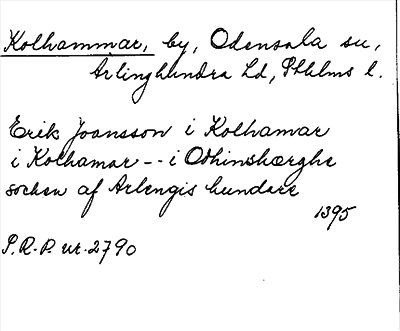 Kolhammar, by, Odensala sn,
Ärlinghundra hd, Sthlms l.
Erik Joansson i Kolhamar
i Kolhamar -- i Othinshærghe
sochen af Arlengis hundare
1395
P.R.P. nr. 2790